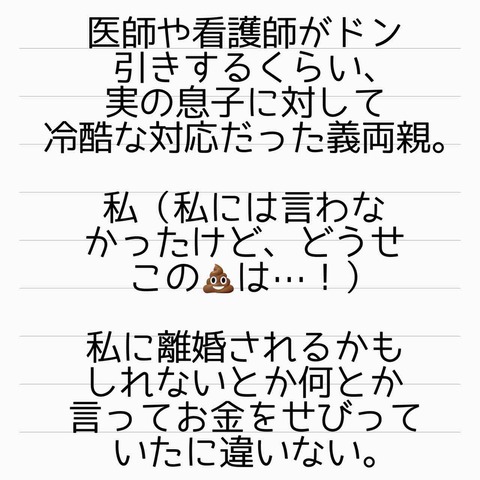 医師や看護師がドン
引きするくらい、
実の息子に対して
冷酷な対応だった義両親。
私（私には言わな
かったけど、どうせ
この💩は…！）
私に離婚されるかも
しれないとか何とか
言ってお金をせびって
いたに違いない。